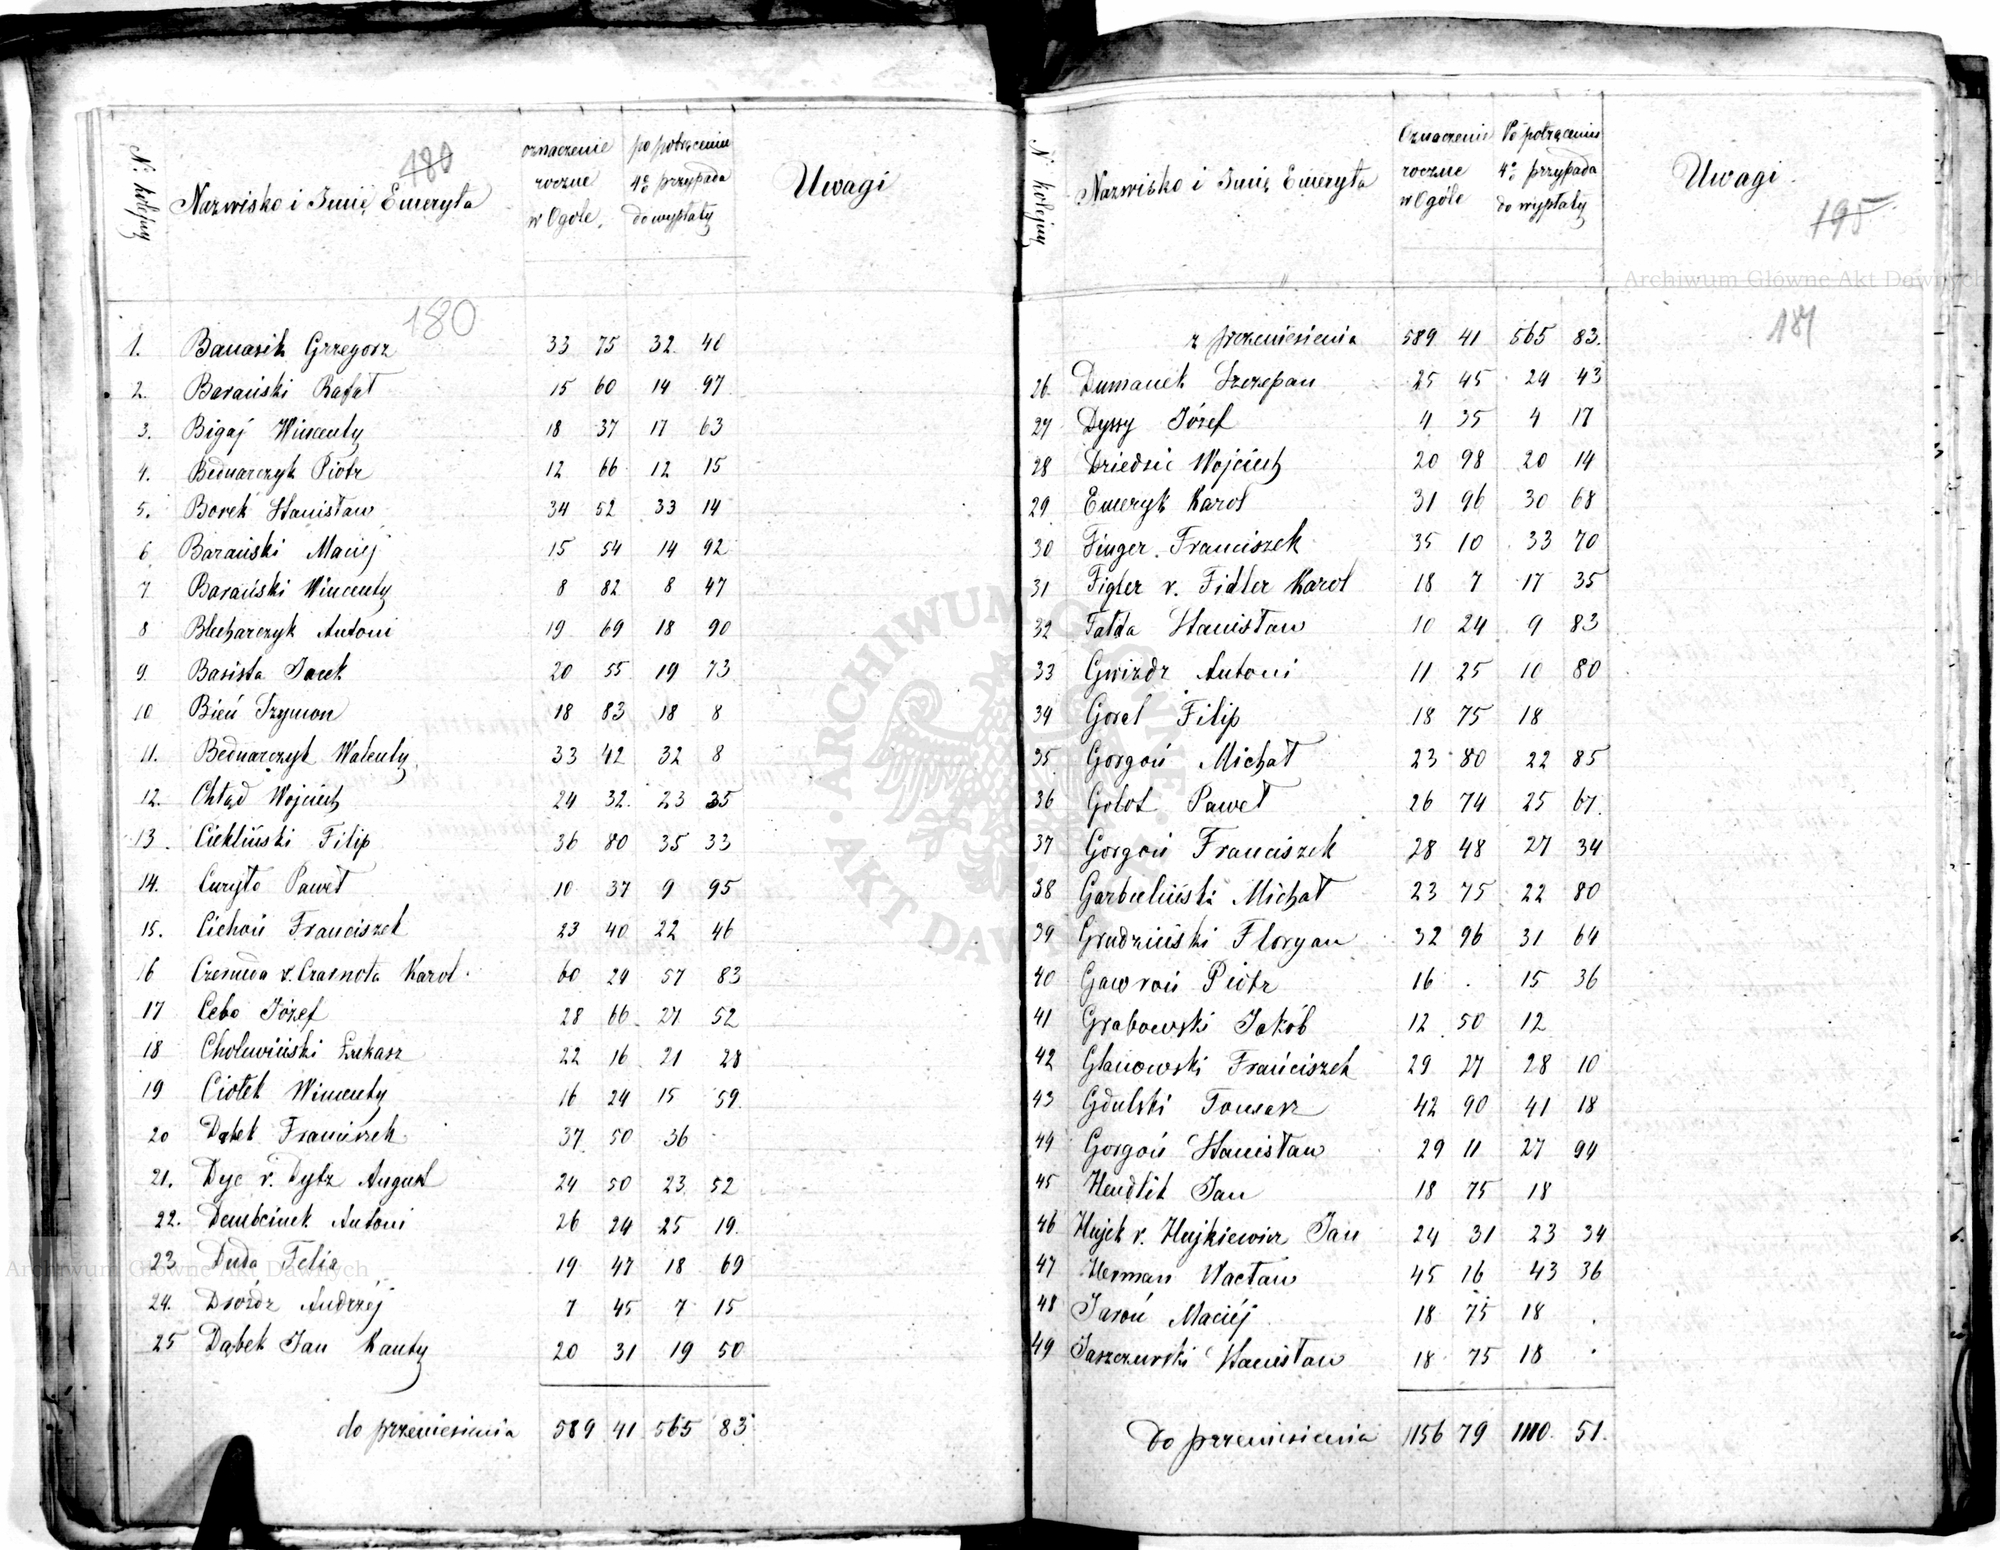 N: kolejny
Nazwisko i Imię Emeryta
180
oznaczenie roczne w Ogóle.
po potrąceniu 4% przypada do wypłaty
Uwagi
180
1. Banasik Grzegorz 33 75 32 40
2. Barański Rafał 15 60 14 97
3. Bigaj Wincenty 18 37 17 63
4. Bednarczyk Piotr 12 66 12 15
5. Borek Stanisław 34 52 33 14
6. Barański Maciej 15 54 14 92
7 Barański Wincenty 8 82 8 47
8 Blecharczyk Antoni 19 69 18 90
9. Basista Jacek 20 55 19 73
10 Bień Szymon 18 83 18 8
11. Bednarczyk Walenty 33 42 32 8
12. Chłąd Wojciech 24 32. 23 35
13. Ciekliński Filip 36 80 35 33
14. Curyło Paweł 10 37 9 95
15. Cichoń Franciszek 23 40 22 46
16 v. Czarnota Karol 60 24 57 83
17 Cebo Józef 28 66 27 52
18 Cholewiński Łukasz 22 16 21 28
19 Ciołek Wincenty 16 24 15 59
20 Dąbek Franciszek 37 50 36
21. Dyc v. Dytz August 24 50 23 52
22. Dembcinek Antoni 26 24 25 19
23 Duda Felix 19 47 18 69
24. Dróżdz Andrzéj 7 45 7 15
25 Dąbek Jan Kanty 20 31 19 50
do przeniesienia 589 41 565 83
N: kolejny
Nazwisko i Imię Emeryta
Oznaczenie roczne w Ogóle
Po potrąceniu 4% przypada do wypłaty
Uwagi
195
Archiwum Główne Akt Dawnych
181
z przeniesienia 589 41 565 83.
26 Dumanek Szczepan 25 45 24 43
27 Dyssy Józef 4 35 4 17
28 Dziedzic Wojciech 20 98 20 14
29 Emeryk Karol 31 96 30 68
30 Finger Franciszek 35 10 33 70
31 Figler v. Fidler Karol 18 7 17 35
32 Fałda Stanisław 10 24 9 83
33 Gwizdz Antoni 11 25 10 80
34 Goral Filip 18 75 18
35 Gorgoń Michał 23 80 22 85
36 Gołot Paweł 26 74 25 67.
37 Gorgoń Franciszek 28 48 27 34
38 Garbuliński Michał 23 75 22 80
39 Grudziński Floryan 32 96 31 64
40 Gawroń Piotr 16 . 15 36
41 Grabowski Jakób 12 50 12
42 Glanowski Franciszek 29 27 28 10
43 Gdulski Tomasz 42 90 41 18
44 Gorgoń Stanisław 29 11 27 94
45 Hendlik Jan 18 75 18
46 Hujek v. Hujkiewicz Jan 24 31 23 34
47 Herman Wacław 45 16 43 36
48 Jaroń Maciéj 18 75 18 .
49 Jaszczurski Stanisław 18 75 18 .
Do przeniesienia 1156 79 1110. 51.
ARCHIWUM GŁÓWNE AKT DAWNYCH
Archiwum Główne Akt Dawnych